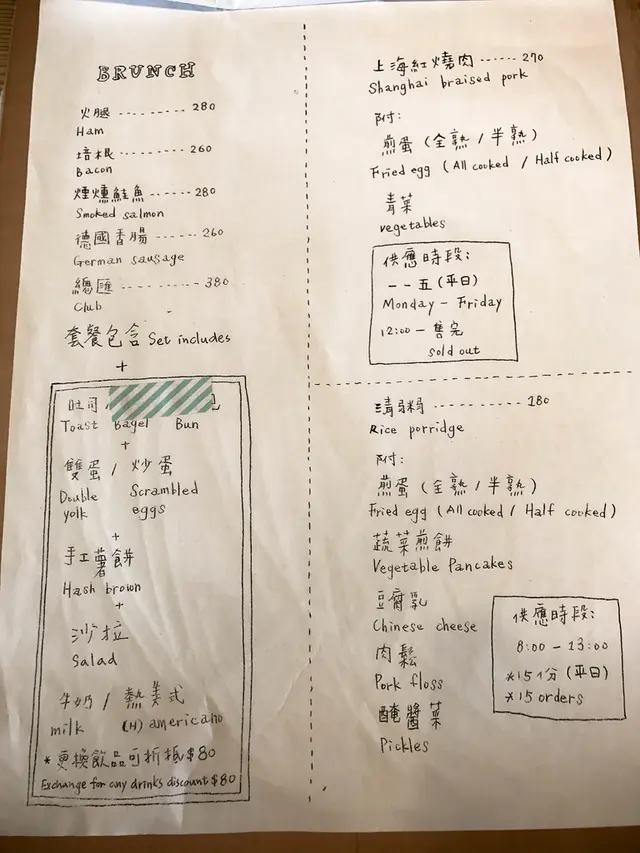 BRUNCH
火腿 -------- 280
Ham
培根 -------- 260
Bacon
煙燻鮭魚 ------ 280
Smoked salmon
德國香腸 ------ 260
German sausage
總匯 -------- 380
Club
套餐包含 Set includes
+
吐司
Toast Bagel Bun
+
雙蛋 / 炒蛋
Double Scrambled
yolk eggs
+
手工薯餅
Hash brown
+
沙拉
Salad
牛奶 / 熱美式
milk (H) americano
* 更換飲品可折抵$80
Exchange for any drinks discount $80
上海紅燒肉 ------ 270
Shanghai braised pork
附:
煎蛋 (全熟 / 半熟)
Fried egg (All cooked / Half cooked)
青菜
vegetables
供應時段:
一 - 五 (平日)
Monday - Friday
12:00 - 售完
sold out
清粥 ---------- 180
Rice porridge
附:
煎蛋 (全熟 / 半熟)
Fried egg (All cooked / Half cooked)
蔬菜煎餅
Vegetable Pancakes
豆腐乳
Chinese cheese
肉鬆
Pork floss
醃醬菜
Pickles
供應時段:
8:00 - 13:00
*15份 (平日)
*15 orders